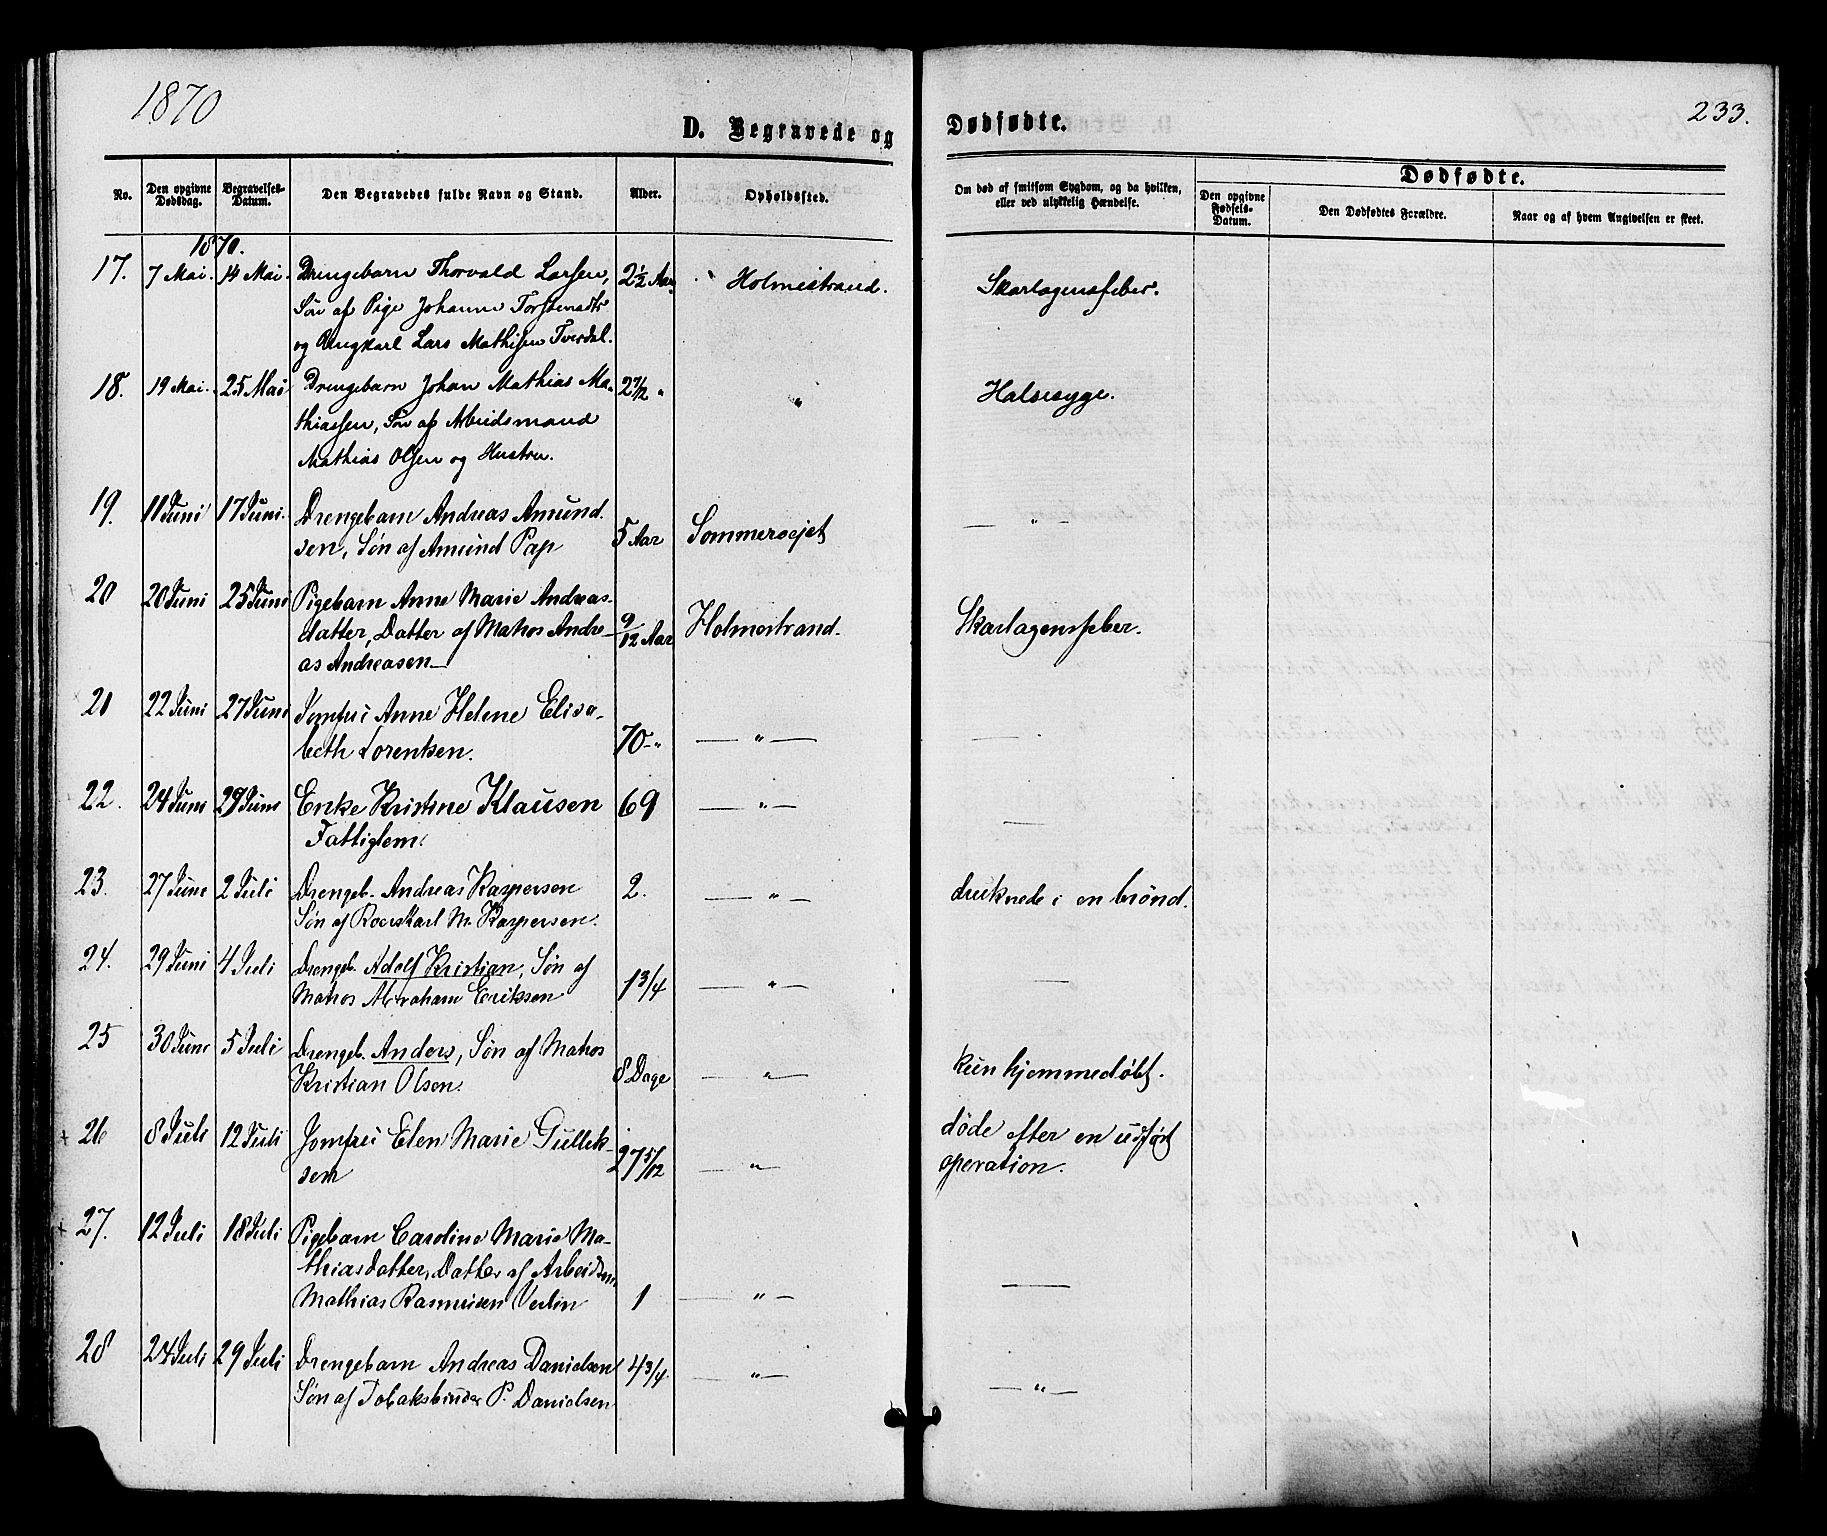 1870
233.
D. Begravede og Dødfødte.
No. Den opgivne Dødsdag. Begravelses-Datum. Den Begravedes fulde Navn og Stand. Alder. Opholdssted. Om død af smitsom Sygdom, og da hvilken, eller ved ulykkelig Hændelse. Dødfødte.
Den opgivne Fødsels-Datum. Den Dødfødtes Forældre. Naar og af hvem Angivelsen er skeet.
1870.
17. 7 Mai. 14 Mai. Drengebarn Thorvald Larsen, 2½ Aar Holmestrand. Skarlagensfeber.
Søn af Pige Johanne Torstensdtr
og Ungkarl Lars Mathisen Tverdal.
18. 19 Mai. 25 Mai Drengebarn Johan Mathias Ma- 2 1/2 " " Halssyge.
thiassen, Søn af Arbeidsmand
Mathias Olsen og Hustru.
19. 11 Juni 17 Juni. Drengebarn Andreas Amund-
sen, Søn af Amund Pap 5 Aar Sommervejet — " —
20 20 Juni 25 Juni Pigebarn Anne Marie Andreas-
datter, Datter af Matros Andre- 9/12 Aar Holmestrand. Skarlagensfeber.
as Andreasen —
21 22 Juni 27 Juni Jomfru Anne Helene Elisa-
beth Lorentsen. 70 " — " —
22. 24 Juni 29 Juni Enke Kristine Klausen 69 — " — —
Fattiglem.
23. 27 Juni 2 Juli Drengeb. Andreas Kaspersen 2. — " — druknede i en brønd.
Søn af Roerskarl M. Kaspersen.
24. 29 Juni 4 Juli Drengeb. Adolf Kristian, Søn af
Matros Abraham Eriksen 1 3/4 — " — —
25 30 Juni 5 Juli Drengeb. Anders, Søn af Matros
Kristian Olsen. 8 Dage — " — kun hjemmedøbt.
26 8 Juli 12 Juli Jomfru Elen Marie Gullik- døde efter en udført
sen 27 5/12 — " — operation.
27. 12 Juli 18 Juli Pigebarn Caroline Marie Ma-
thiasdatter, Datter af Arbeidsm.
Mathias Rasmusen 1 — " — —
28 24 Juli 29 Juli Drengebarn Andreas Danielsen 4 3/4 — " — — " —
Søn af Tobaksbinder P. Danielsen